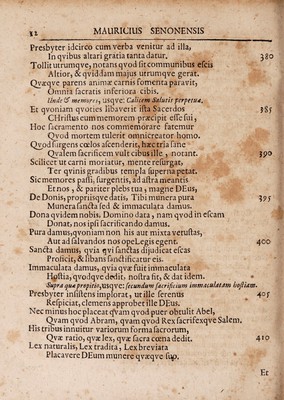 82 MAURICIUS SENONENSIS
Presbyter idcirco cum verba venitur ad illa,
In qvibus altari gratia tanta datur, 380
Tollit utrumqve, notans qvod sit communibus escis
Altior, & qviddam majus utrumqve gerat.
Qvæqve parens animæ carnis fomenta paravit,
Omnia sacratis inferiora cibis.
Unde & memores, usqve: Calicem salutis perpetuæ.
Et qvoniam qvoties libaverit ista Sacerdos 385
CHristus eum memorem præcipit esse sui,
Hoc sacramento nos commemorare fatemur
Qvod mortem tulerit omnicreator homo.
Qvod surgens cœlos ascenderit, hæc tria sane
Qvalem sacrificem vult cibus ille, notant. 390
Scilicet ut carni moriatur, mente resurgat,
Ter qvinis gradibus templa superna petat.
Sic memores passi, surgentis, ad astra meantis
Et nos, & pariter plebs tua, magne DEus,
De Donis, propriisqve datis, Tibi munera pura 395
Munera sancta sed & immaculata damus.
Dona qvidem nobis. Domino data, nam qvod in escam
Donat, nos ipsi sacrificando damus.
Pura damus, qvoniam non his aut mista vetustas,
Aut ad salvandos nos ope Legis egent. 400
Sancta damus, quia qvi sanctas dijadicat escas
Proficit, & libans sanctificatur eis.
Immaculata damus, quia quæ fuit immaculata
Hostia, qvodqve dedit. nostra fit, & dat idem.
Supra quæ propitio, usqve: secundum sacrificium immaculatam hostiam.
Presbyter insistens implorat, ut ille serenus 405
Respiciat, clemens approbet ille DEus.
Nec minus hoc placeat qvam qvod puer obtulit Abel,
Qvam qvod Abram, qvam qvod Rex sacrifexqve Salem.
His tribus innuitur variorum forma sacrorum,
Qvæ ratio, qvæ lex, quæ sacra cœna dedit. 410
Lex naturalis, Lex tradita, Lex breviata
Placavere DEum munere qvæqve suo.
Et